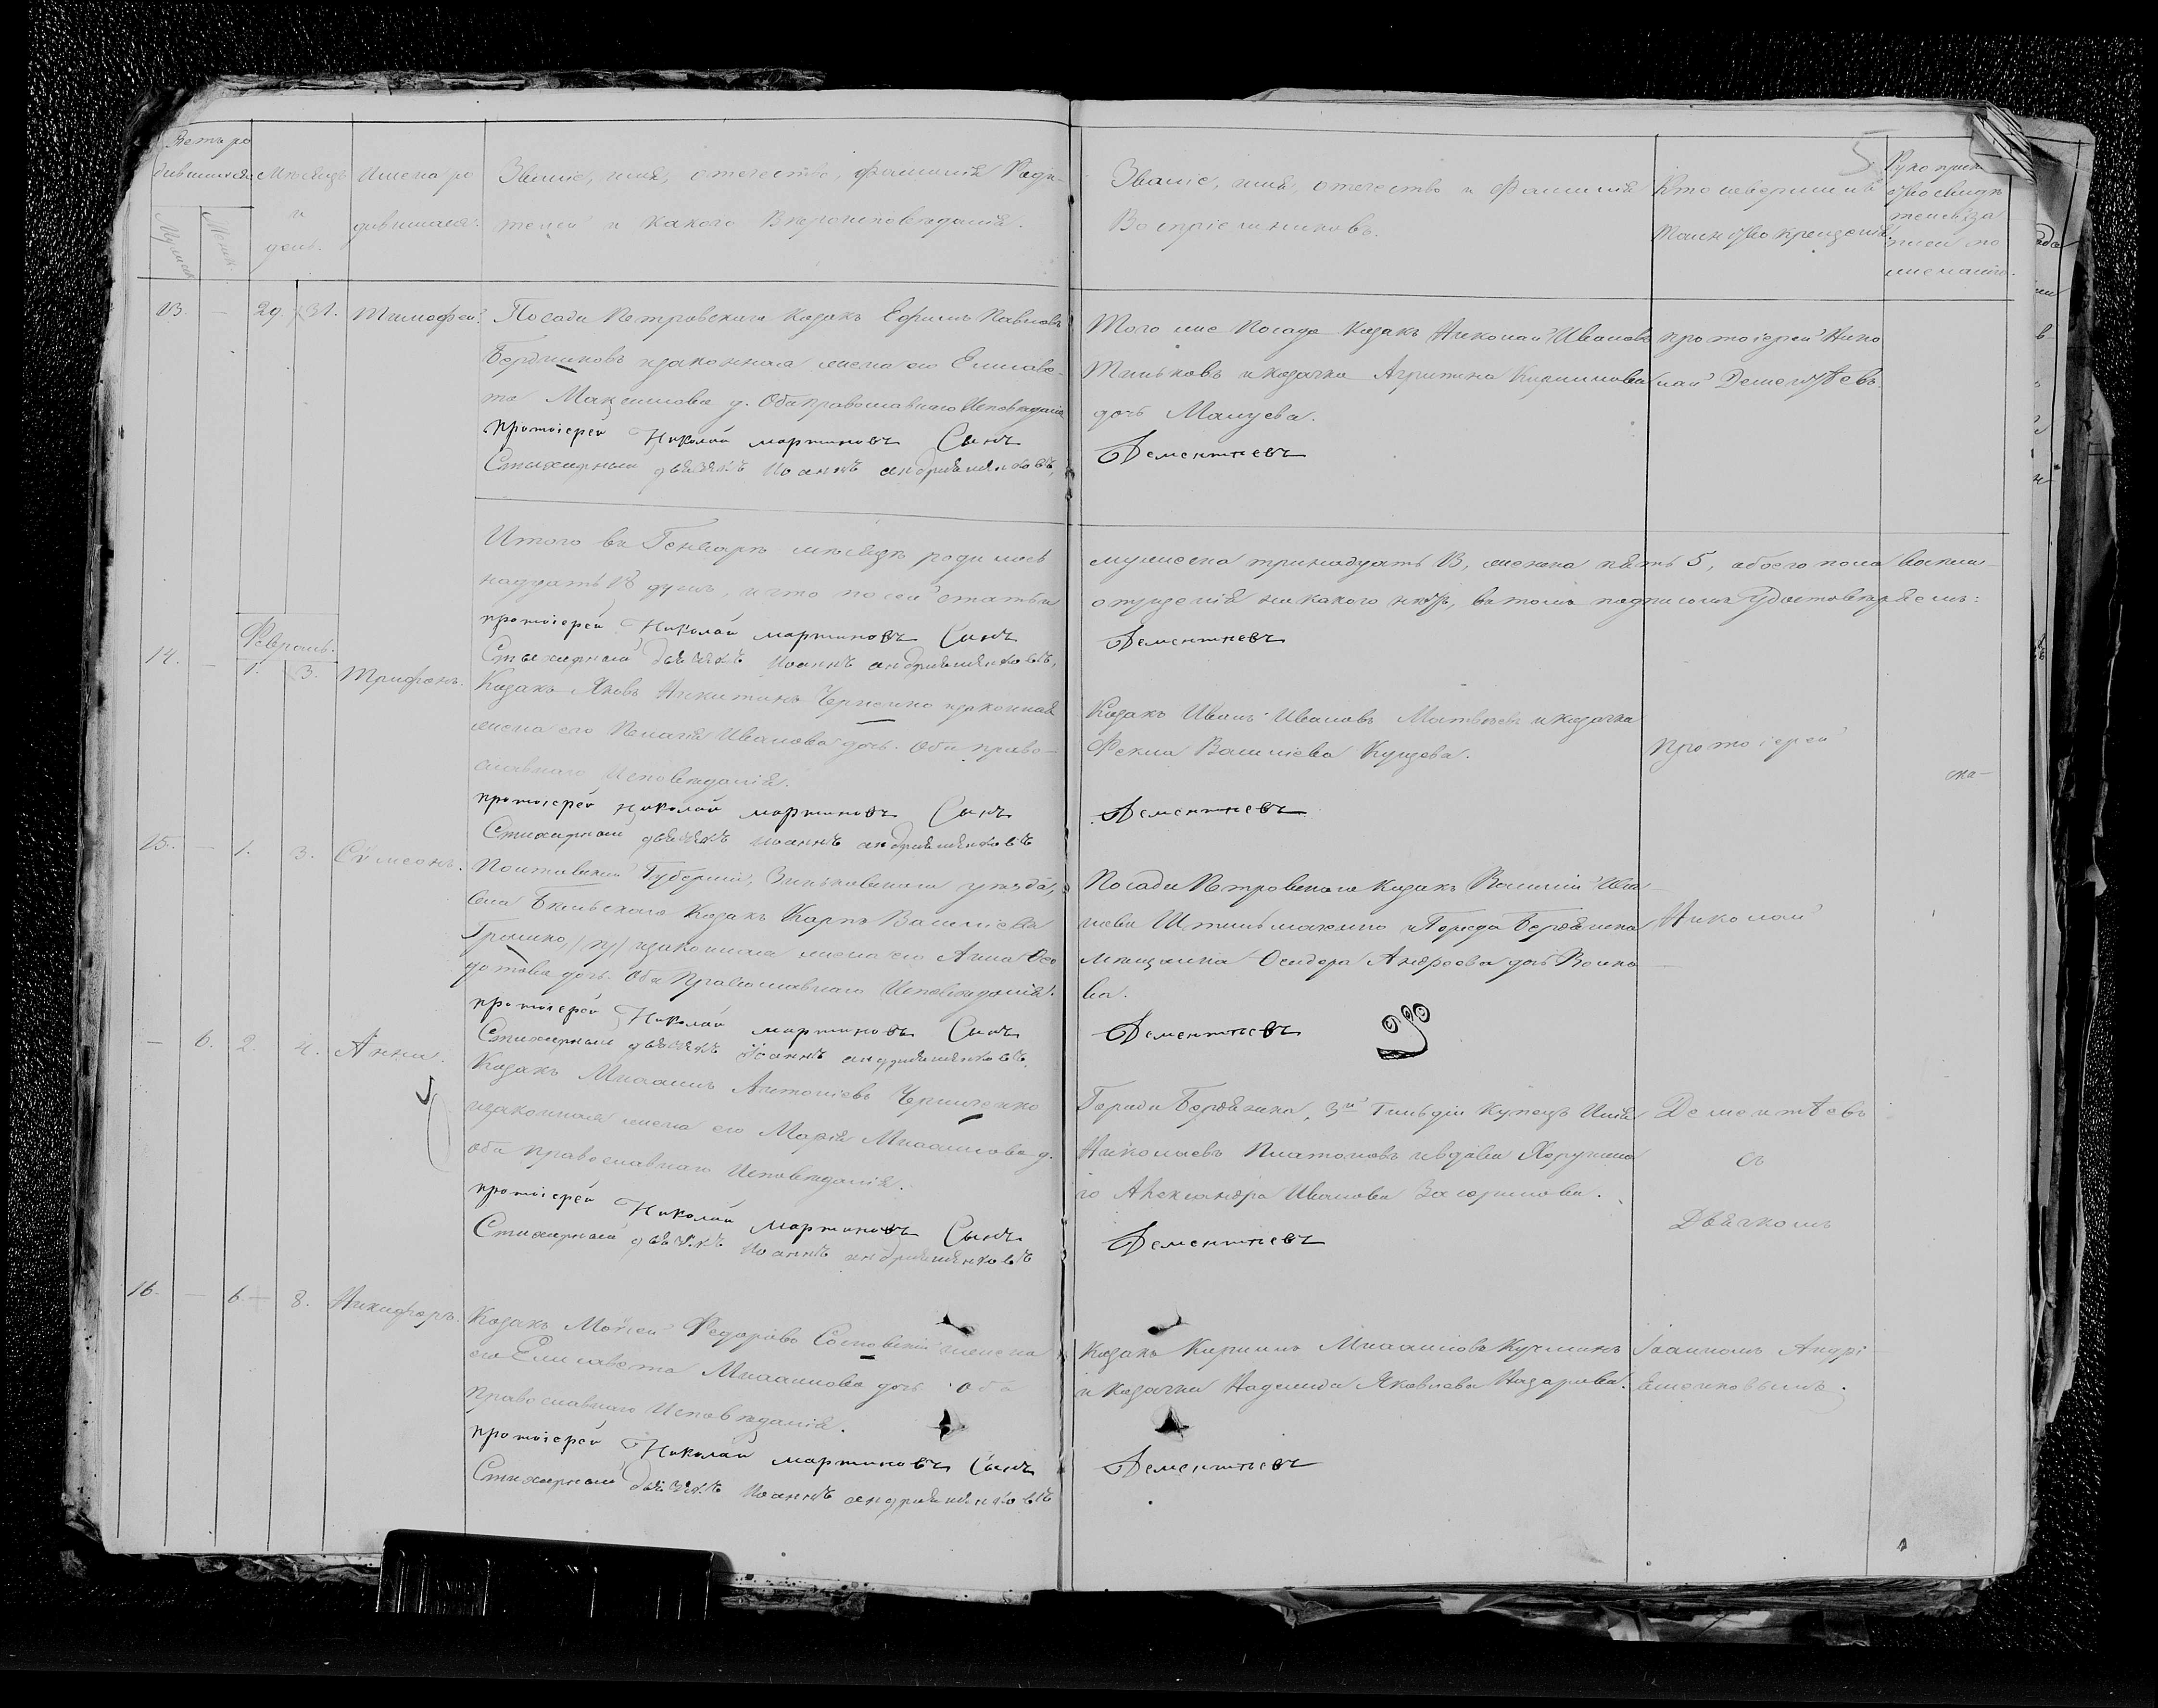 Счетъ ро
дившихся
Мужеск.
Женск.
Мѣсяцъ
и
день.
Имена ро
дившихся.
Званіе, имя, отечество, фамилія Роди-
телей и какого Вѣроисповѣданія.
Званіе, имя, отечество и Фамилія
Воспріемниковъ.
Кто совершилъ
таинство крещенія.
5
Рукоприк
ство свидѣ
телей за
писи по
желанію.
13. — 29. 31. Тимофей.
Посада Петровскаго козакъ Ефимъ Павловъ
Бердниковъ и законная жена его Елисаве-
та Максимова д. Оба православнаго Исповѣданія
протоіерей Николай мартиновъ Сынъ
Стихарный дьячекъ Иоаннъ андріяшенковъ,
Того же Посада Козакъ Николай Ивановъ
Тиньковъ и козачка Агрипина
дочь Мацуева.
Дементьевъ
протоіерей Нико
лай Дементьевъ.
Итого въ Генварѣ мѣсяцѣ родилось
мужеска тринадцать 13, женска пять 5, обоего пола восем-
надцать 18 душъ, и что по сей статьи
въ томъ подписомъ Удостовѣряемъ:
протоіерей Николай мартиновъ Сынъ
Дементьевъ
Стихарный дьячекъ Иоаннъ андріяшенковъ,
Февраль.
14. — 1. 3. Трифонъ.
Козакъ Яковъ Никитинъ законная
жена его Пелагія Иванова дочь. Оба право-
славнаго Исповѣданія.
протоіерей Николай мартиновъ Сынъ
Стихарный дьячекъ Иоаннъ андріяшенковъ
Козакъ Иванъ Ивановъ Матвѣевъ и козачка
Фекла Василіева Купцева.
Дементьевъ
Протоіерей
15. — 1. 3. Сѵмеонъ.
Полтавской Губерніи, Зиньковскаго уѣзда,
села Бѣльскаго Козакъ Карпъ Василіевъ
Громко, и законная жена его Анна Фео
дотова дочь. Оба Православнаго Исповѣданія.
протоіерей Николай мартиновъ Сынъ
Стихарный дьячекъ Иоаннъ андріяшенковъ.
Посада Петровскаго Козакъ Василій
и Города Бердянска
мѣщанка Андреева дочь Волко
ва.
Дементьевъ
Николай
— 6. 2. 4. Анна.
Козакъ Михаилъ Антоніевъ Черниченко
и законная жена его Марія Михаилова д.
оба православнаго Исповѣданія.
протоіерей Николай мартиновъ Сынъ
Стихарный дьячекъ Иоаннъ андріяшенковъ
Города Бердянска, 3й Гильдіи Купецъ Илія
Николаевъ Платоновъ и вдова Хорунжа
го Александра Иванова
Дементьевъ
Дементьевъ
съ
Дьячкомъ
16. — 6. — 8. Никифоръ.
Козакъ Моѵсей Федоровъ Сосновскій жена
его Елисавета Михаилова дочь Оба
православнаго Исповѣданія.
протоіерей Николай мартиновъ Сынъ
Стихарный дьячекъ Иоаннъ андріяшенковъ
Козакъ Кириллъ Михаиловъ Кучминъ
и козачка Надежда Яковлева Назарова.
Дементьевъ
Іоанномъ Андрі
яшенковымъ.